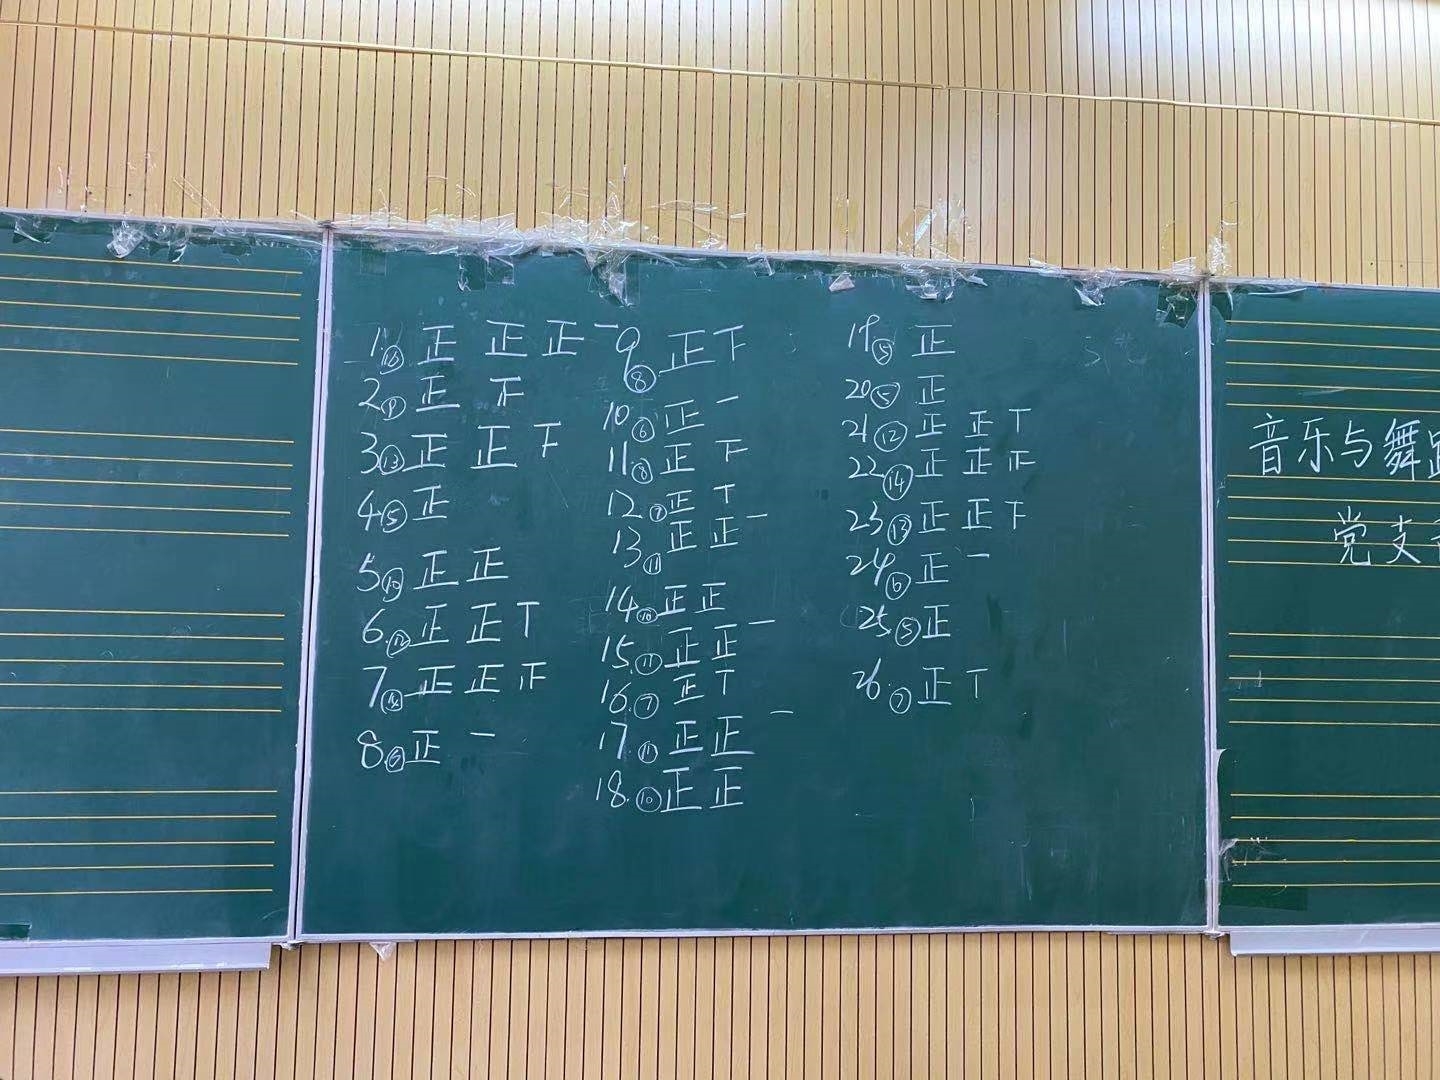 1.⑯正 正 正一
2.⑧正 下
3.⑬正 正 下
4.⑤正
5.⑩正 正
6.⑫正 正 丅
7.⑭正 正 止
8.⑥正 一
9.⑧正 下
10.⑥正一
11.⑧正 下
12.⑦正 丅
13.⑪正 正一
14.⑩正 正
15.⑪正 正一
16.⑦正 丅
17.⑪正 正一
18.⑩正 正
19.⑤正
20.⑤正
21.⑫正 正 丅
22.⑭正 正 止
23.⑬正 正 下
24.⑥正一
25.⑤正
26.⑦正 丅
音乐与舞蹈
党支